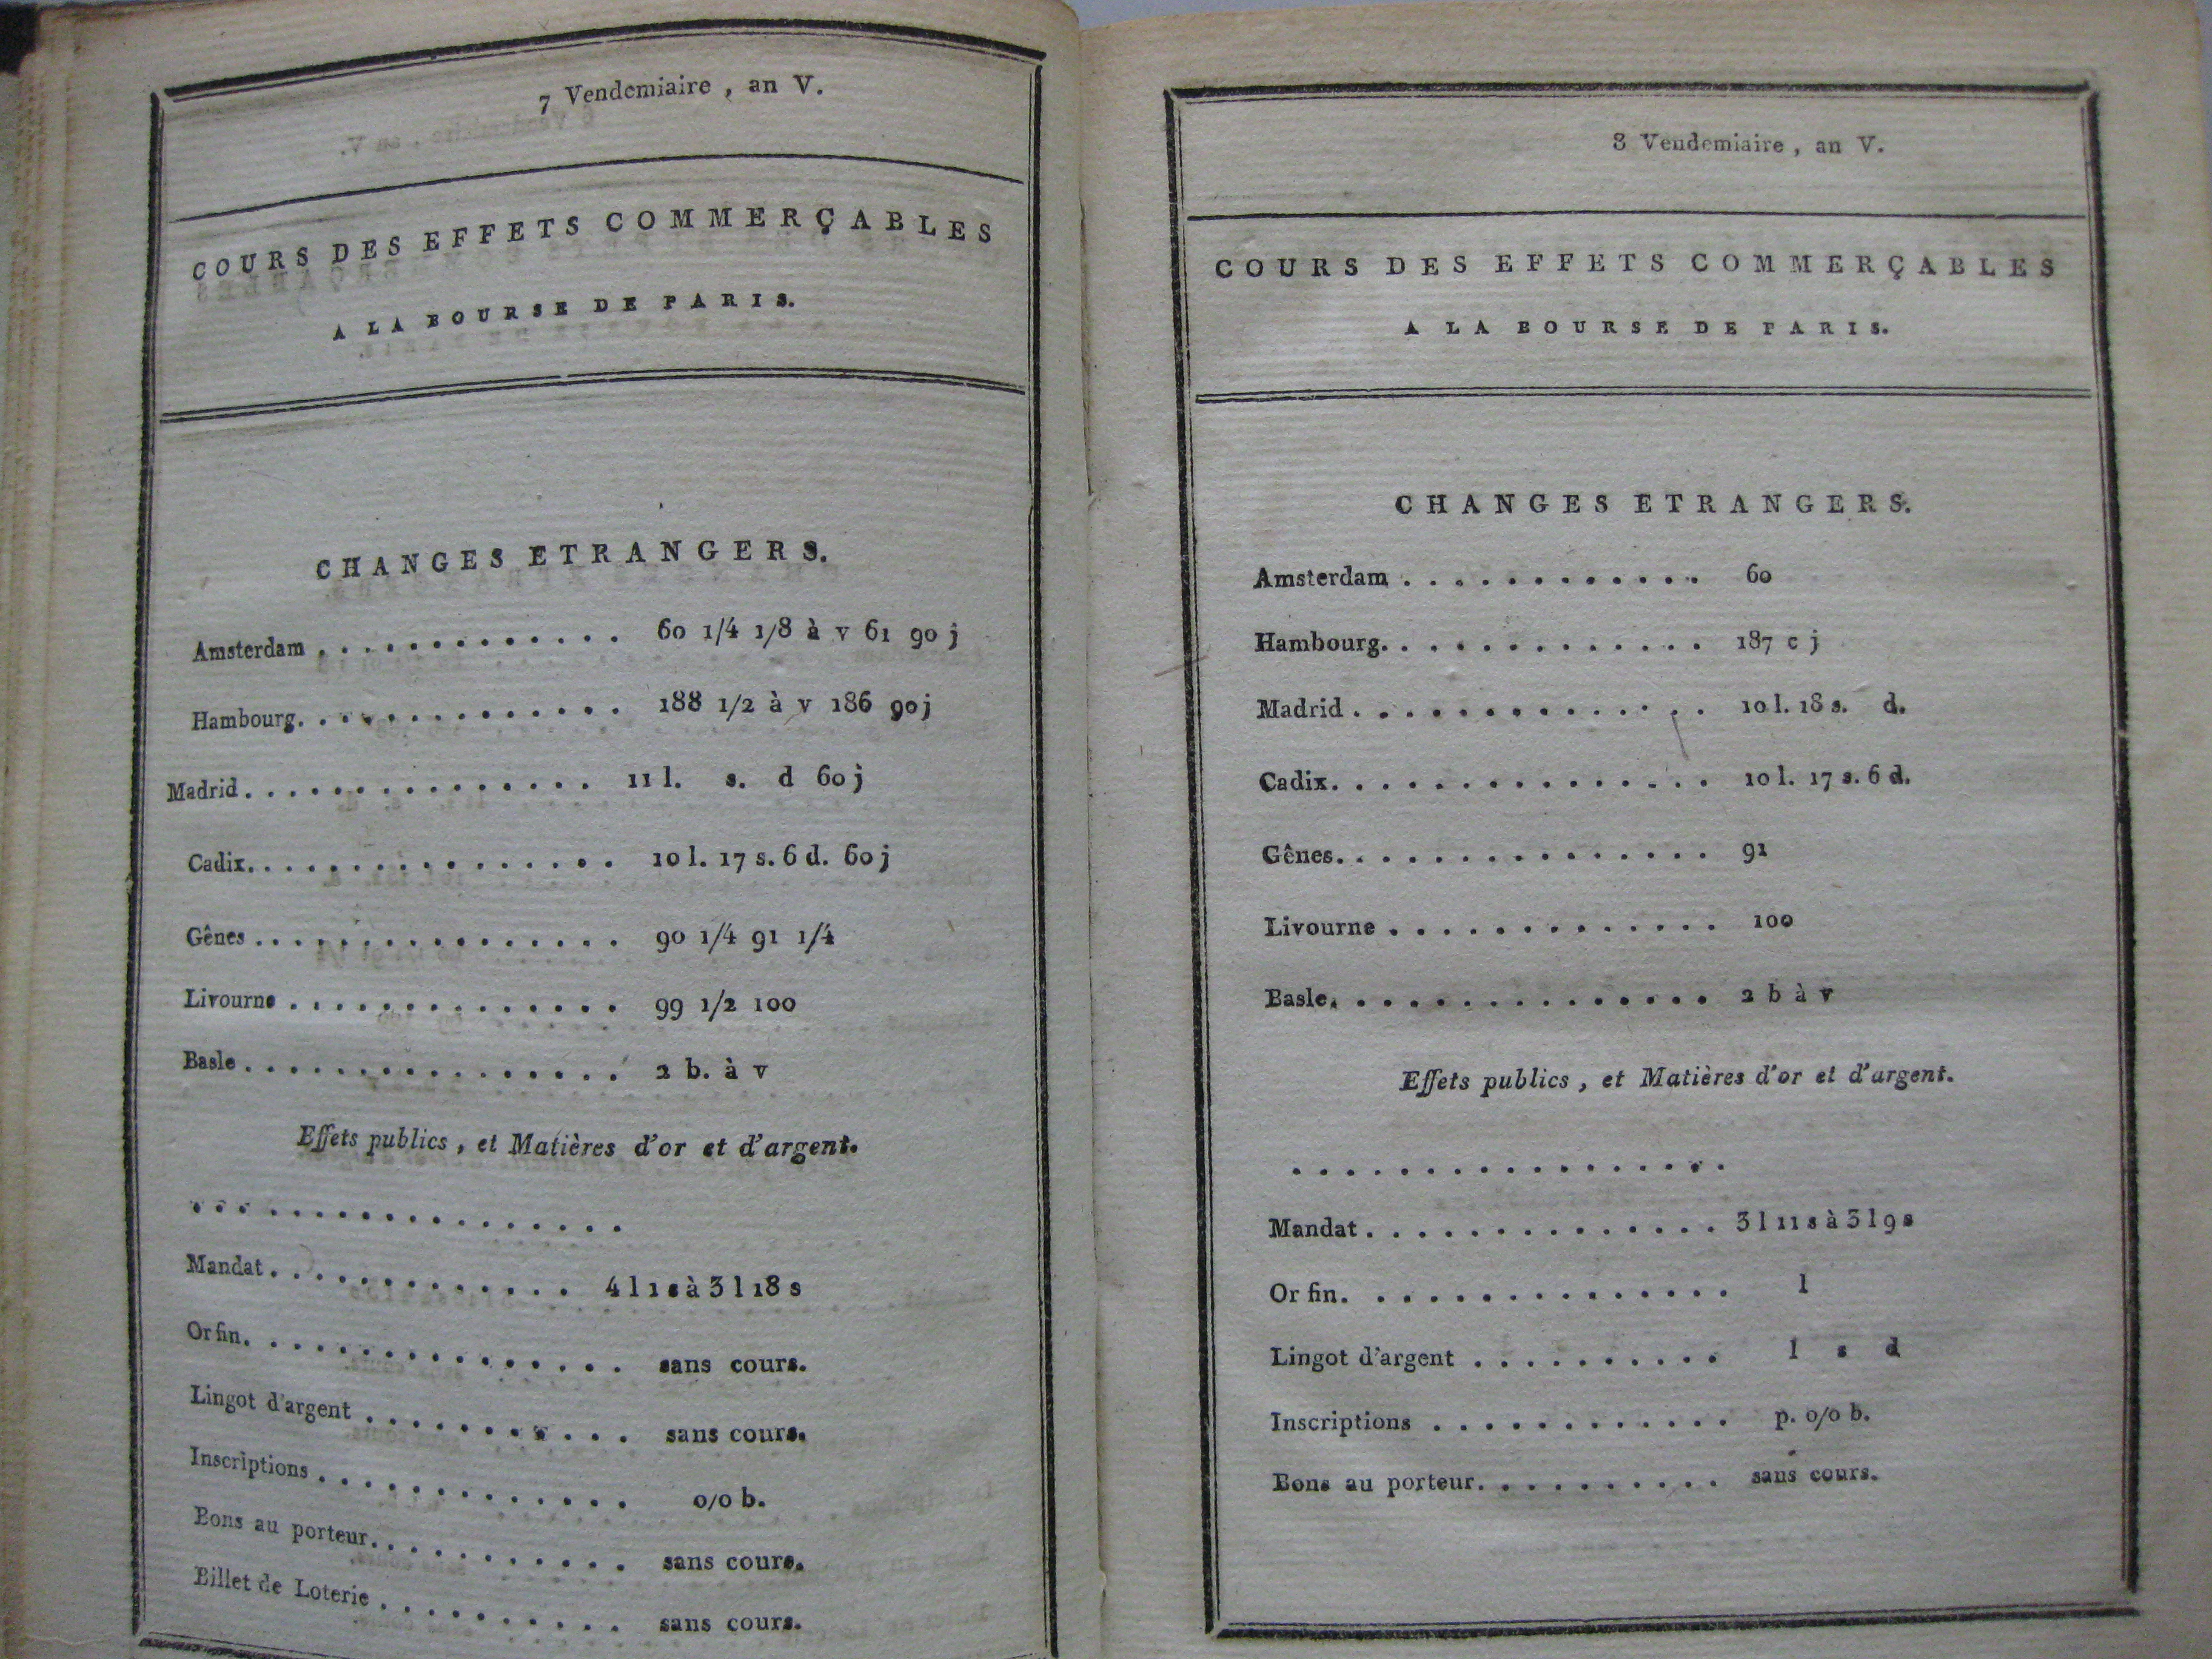 7 Vendemiaire , an V.
COURS DES EFFETS COMMERÇABLES
A LA BOURSE DE PARIS.
CHANGES ETRANGERS.
Amsterdam . . . . . . . . . . . . 60 1/4 1/8 à v 61 90 j
Hambourg. . . . . . . . . . . . . 188 1/2 à v 186 90 j
Madrid . . . . . . . . . . . . . . . 11 l. s. d 60 j
Cadix. . . . . . . . . . . . . . . . 10 l. 17 s. 6 d. 60 j
Gênes . . . . . . . . . . . . . . . . 90 1/4 91 1/4
Livourne . . . . . . . . . . . . . . 99 1/2 100
Basle . . . . . . . . . . . . . . . . 2 b. à v
Effets publics , et Matières d'or et d'argent.
. . . . . . . . . . . . . . . . . .
Mandat . . . . . . . . . . . . . . 4 l 1 s à 3 l 18 s
Or fin. . . . . . . . . . . . . . . . sans cours.
Lingot d'argent . . . . . . . . . . . sans cours.
Inscriptions . . . . . . . . . . . . . 0/0 b.
Bons au porteur. . . . . . . . . . . sans cours.
Billet de Loterie . . . . . . . . . . . sans cours.
8 Vendemiaire , an V.
COURS DES EFFETS COMMERÇABLES
A LA BOURSE DE PARIS.
CHANGES ETRANGERS.
Amsterdam . . . . . . . . . . . . 60
Hambourg. . . . . . . . . . . . . 187 c j
Madrid . . . . . . . . . . . . . . 10 l. 18 s. d.
Cadix. . . . . . . . . . . . . . . 10 l. 17 s. 6 d.
Gênes. . . . . . . . . . . . . . . 91
Livourne . . . . . . . . . . . . . 100
Basle. . . . . . . . . . . . . . . 2 b à v
Effets publics , et Matières d'or et d'argent.
. . . . . . . . . . . . . . . . .
Mandat . . . . . . . . . . . . . . 3 l 11 s à 3 l 9 s
Or fin. . . . . . . . . . . . . . . l
Lingot d'argent . . . . . . . . . . l s d
Inscriptions . . . . . . . . . . . . p. 0/0 b.
Bons au porteur. . . . . . . . . . sans cours.